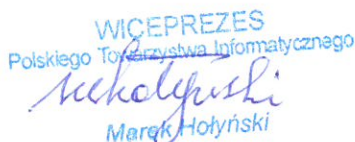 WICEPREZES
Polskiego Towarzystwa Informatycznego
Marek Hołyński